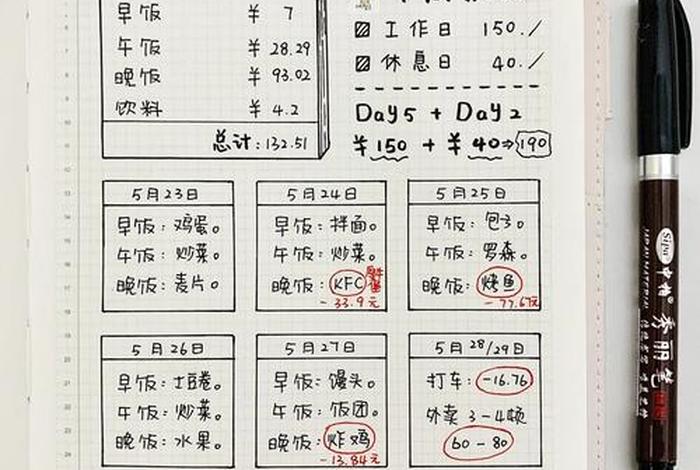 早饭 ¥ 7
午饭 ¥ 28.29
晚饭 ¥ 93.02
饮料 ¥ 4.2
总计:132.51
工作日 150./
休息日 40./
Day5 + Day2
¥150 + ¥40⇒190
5月23日
早饭:鸡蛋。
午饭:炒菜。
晚饭:麦片。
5月24日
早饭:拌面。
午饭:炒菜。
晚饭:KFC
-33.9元
5月25日
早饭:包子。
午饭:罗森。
晚饭:烤鱼
-77.67元
5月26日
早饭:土豆卷。
午饭:炒菜。
晚饭:水果。
5月27日
早饭:馒头。
午饭:饭团。
晚饭:炸鸡
-13.84元
5月28/29日
打车:-16.76
外卖 3-4顿
60-80
Sipa 中柏 秀丽笔